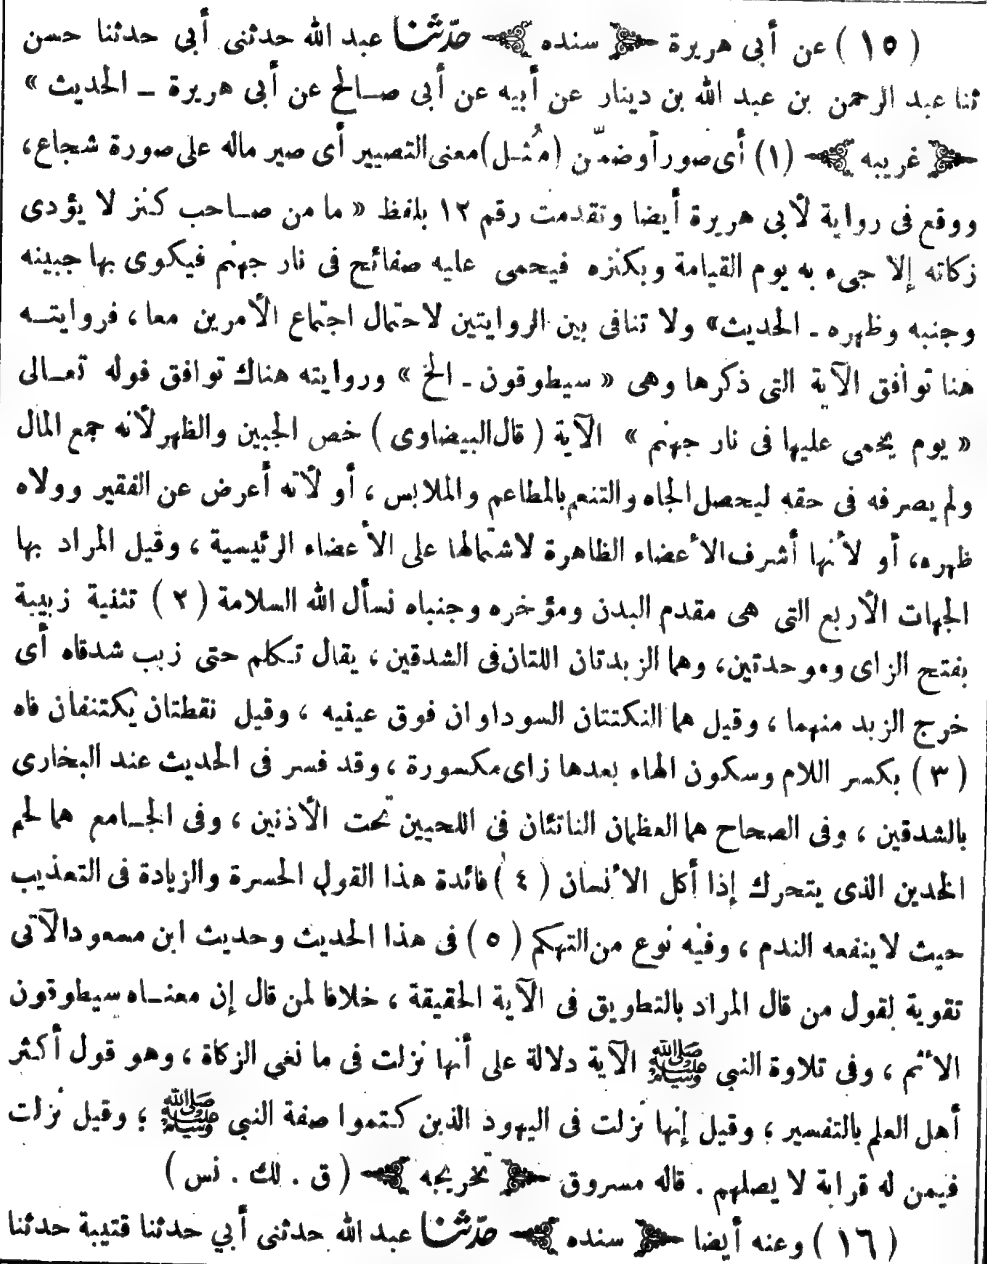 ( ١٥ ) عن أبى هريرة سنده حدّثنا عبد الله حدثنى أبى حدثنا حسن
ثنا عبد الرحمن بن عبد الله بن دينار عن أبيه عن أبى صالح عن أبى هريرة ــ الحديث »
غريبه (١) أى صور أو ضمّن (مُثل) معنى التصيير أى صير ماله على صورة شجاع،
ووقع فى رواية لأبى هريرة أيضا وتقدمت رقم ١٢ بلفظ « ما من صاحب كنز لا يؤدى
زكاته إلا جىء به يوم القيامة وبكنزه فيحمى عليه صفائح فى نار جهنم فيكوى بها جبينه
وجنبه وظهره ـ الحديث» ولا تنافى بين الروايتين لاحتمال اجتماع الأمرين معا، فروايته
هنا توافق الآية التى ذكرها وهى « سيطوقون ـ الخ » وروايته هناك توافق قوله تعالى
« يوم يحمى عليها فى نار جهنم » الآية ( قال البيضاوى ) خص الجبين والظهر لأنه جمع المال
ولم يصرفه فى حقه ليحصل الجاه والتنعم بالمطاعم والملابس ، أو لأنه أعرض عن الفقير وولاه
ظهره، أو لأنها أشرف الأعضاء الظاهرة لاشتمالها على الأعضاء الرئيسية ، وقيل المراد بها
الجهات الأربع التى هى مقدم البدن ومؤخره وجنباه نسأل الله السلامة ( ٢ ) تثنية زبيبة
بفتح الزاى وموحدتين، وهما الزبدتان اللتان فى الشدقين ، يقال تكلم حتى زبب شدقاه أى
خرج الزبد منهما ، وقيل هما النكتتان السوداوان فوق عينيه ، وقيل نقطتان يكتنفان فاه
( ٣ ) بكسر اللام وسكون الهاء بعدها زاى مكسورة ، وقد فسر فى الحديث عند البخارى
بالشدقين ، وفى الصحاح هما العظمان الناتئان فى اللحيين تحت الأذنين ، وفى الجامع هما لحم
الخدين الذى يتحرك إذا أكل الأنسان ( ٤ ) فائدة هذا القول الحسرة والزيادة فى التعذيب
حيث لا ينفعه الندم ، وفيه نوع من التهكم ( ٥ ) فى هذا الحديث وحديث ابن مسعود الآتى
تقوية لقول من قال المراد بالتطويق فى الآية الحقيقة ، خلافا لمن قال إن معناه سيطوقون
الأثم ، وفى تلاوة النبى ﷺ الآية دلالة على أنها نزلت فى ما نعى الزكاة ، وهو قول أكثر
أهل العلم بالتفسير ، وقيل إنها نزلت فى اليهود الذين كتموا صفة النبى ﷺ ؛ وقيل نزلت
فيمن له قرابة لا يصلهم . قاله مسروق تخريجه ( ق . لك . نس )
( ١٦ ) وعنه أيضا سنده حدّثنا عبد الله حدثنى أبي حدثنا قتيبة حدثنا